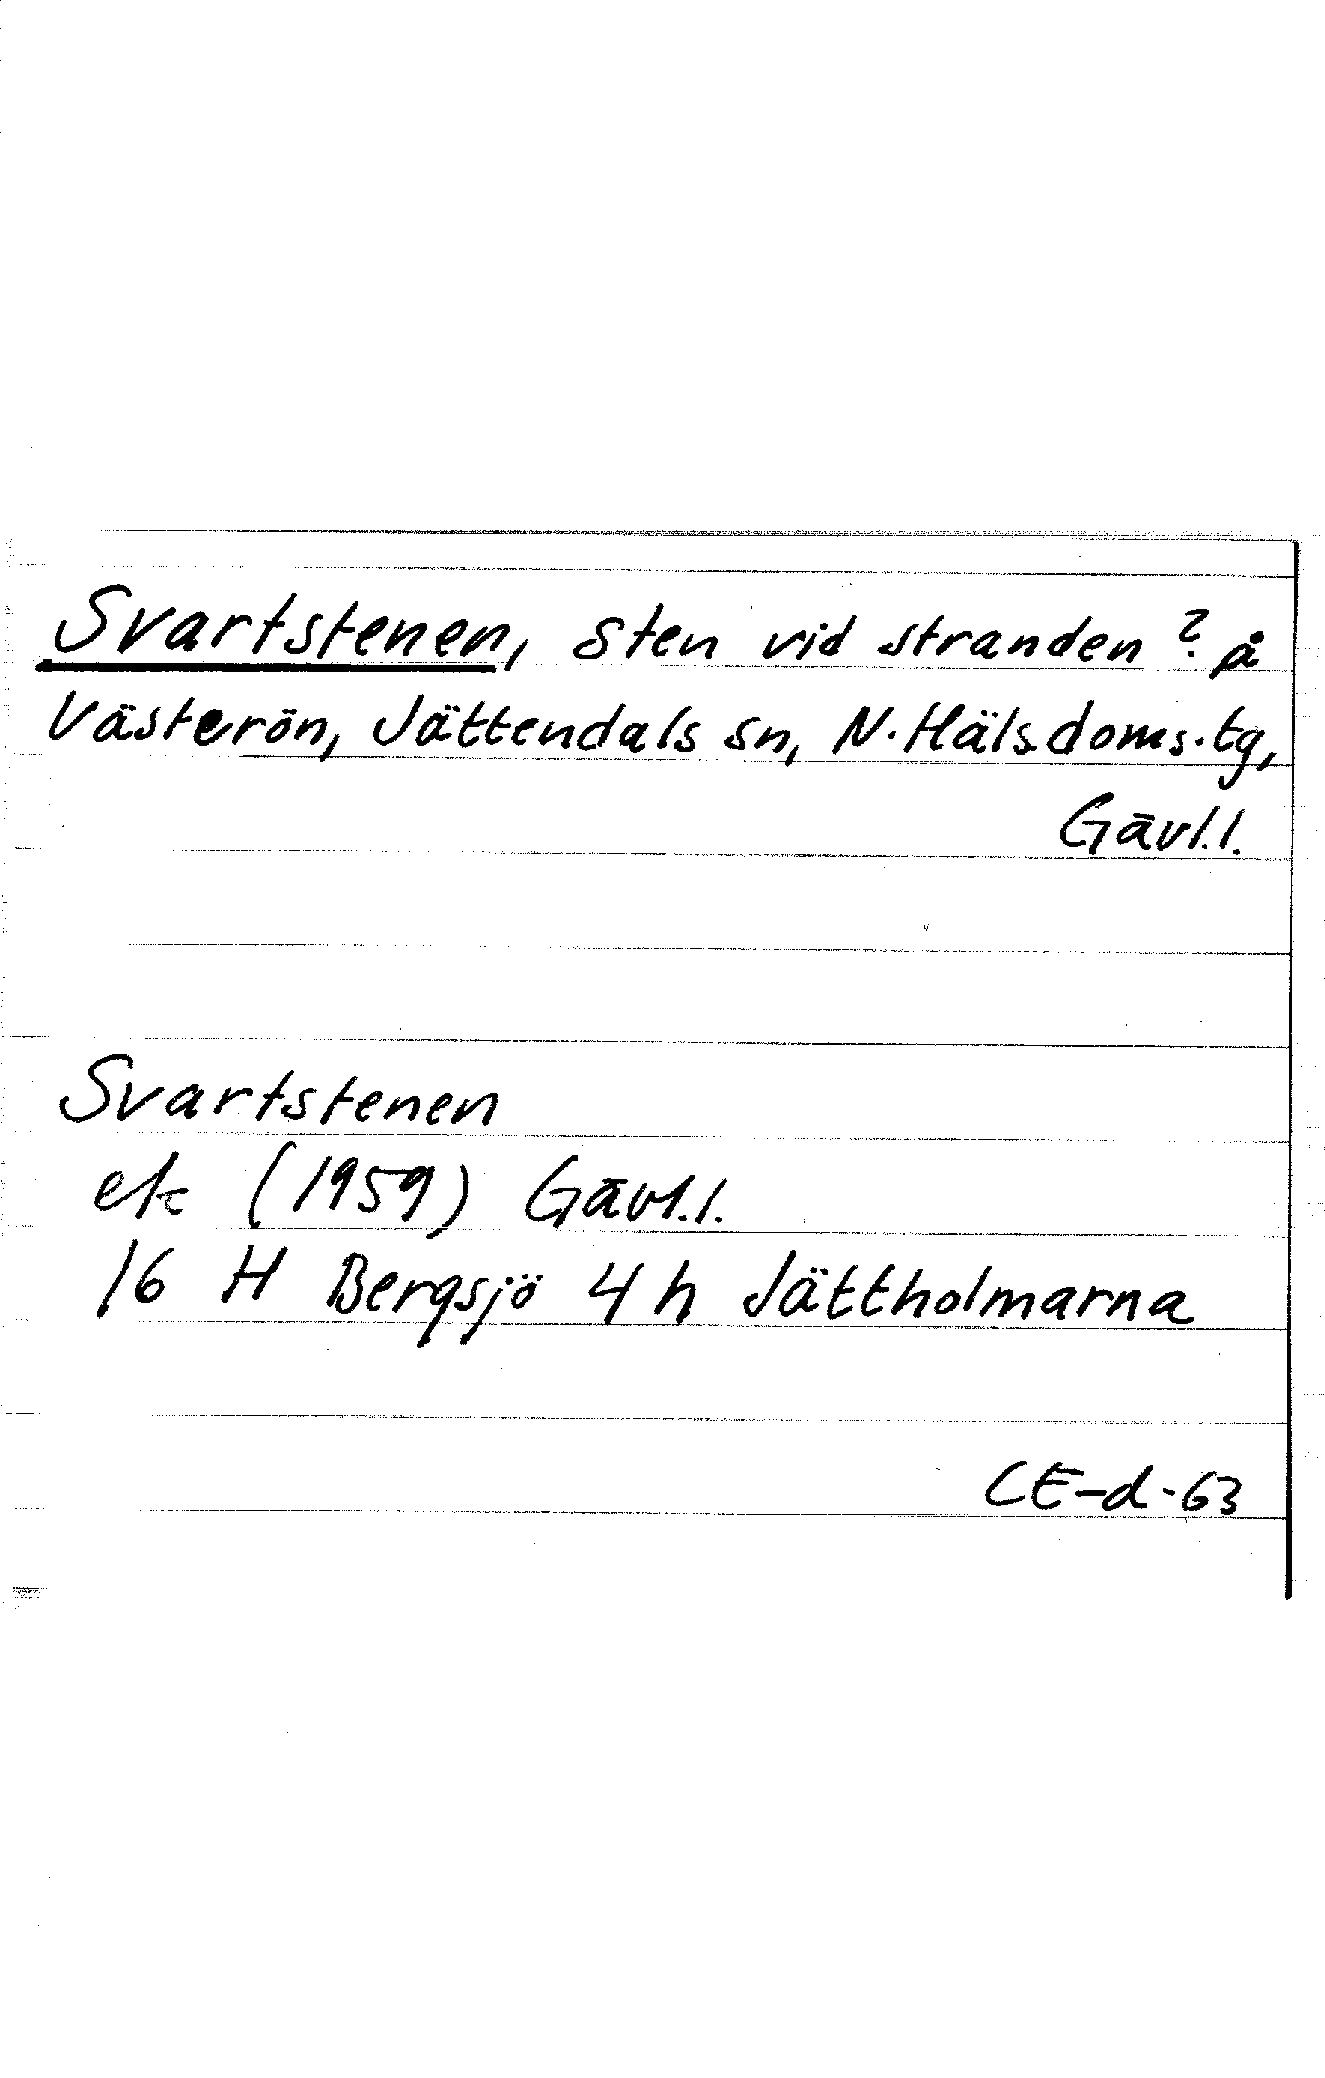 Svartstenen, Sten vid stranden ? å
Västerön, Jättendals sn, N. Häls. doms. tg,
Gävl. l.
Svartstenen
ek (1959) Gävl. l.
16 H Bergsjö 4 h Jättholmarna
CE-d-63